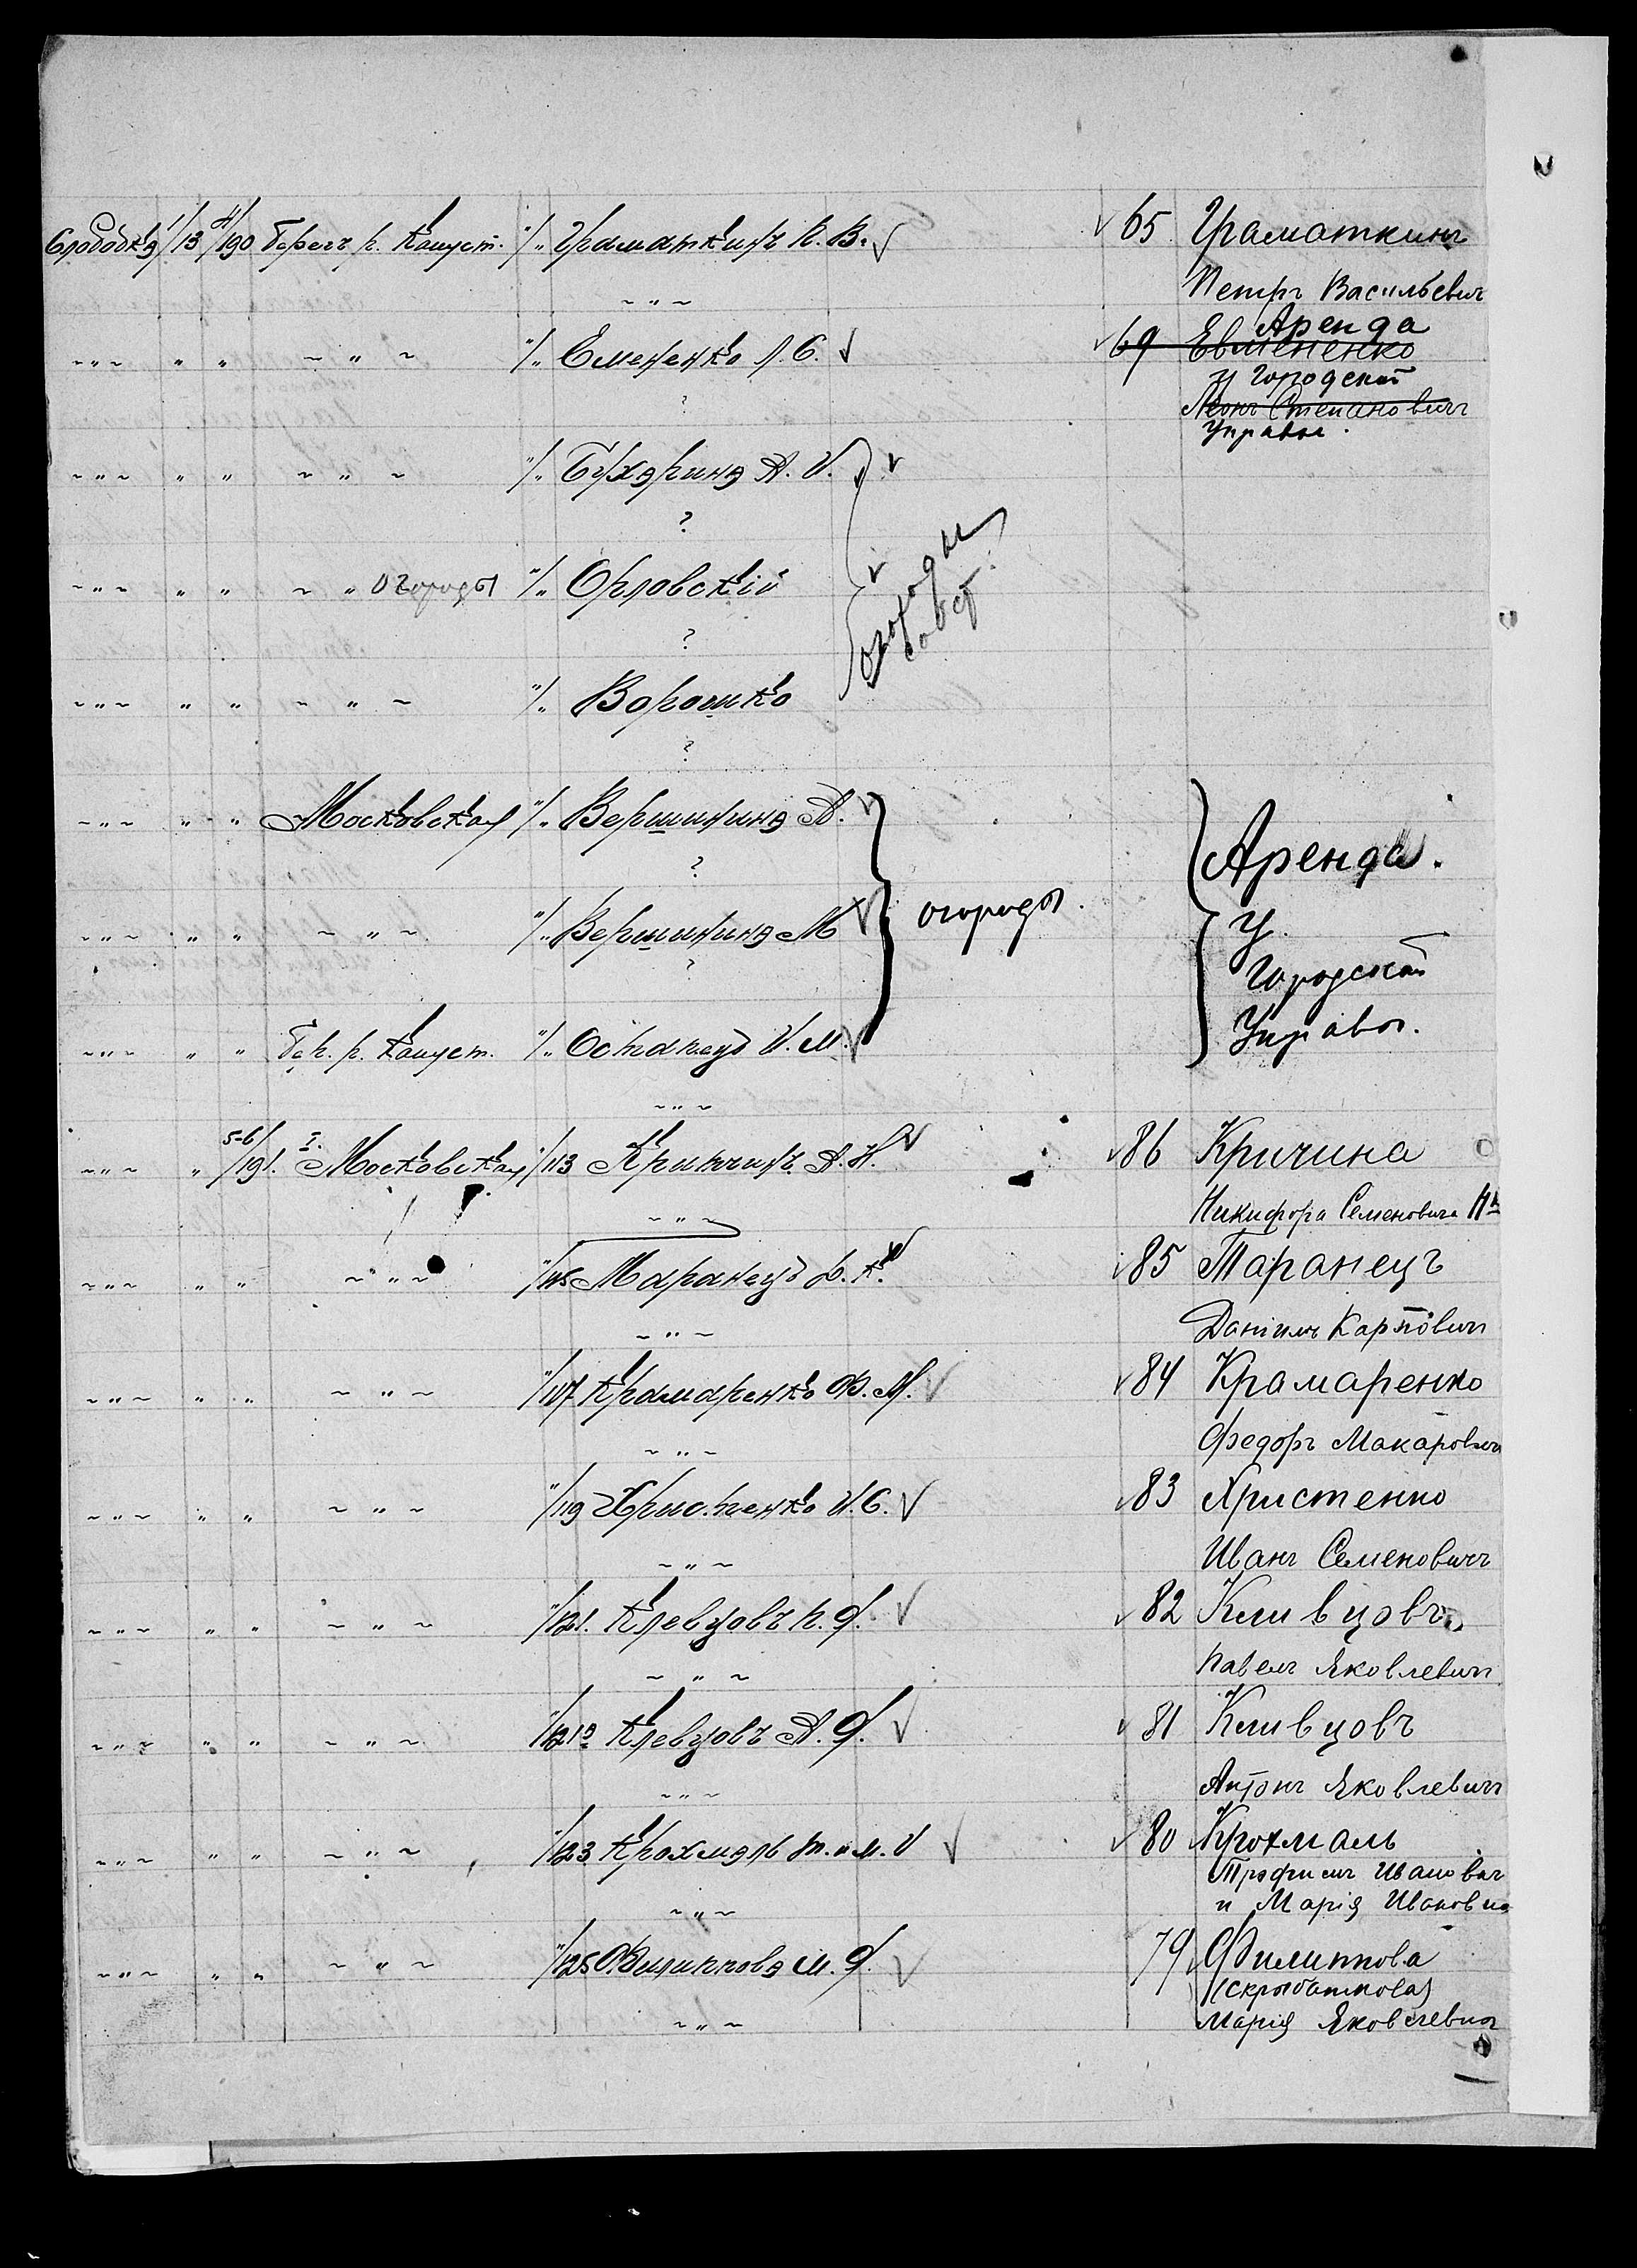 Слободка 1/13 4/190 Берегъ р. Капуст. "/„ Граматкинъ П. В. ✓ ✓ 65 Граматкинъ
~ „ ~ Петръ Васильевич
~„~ „ „ ~ „ ~ "/„ Емененко Л. С. ✓ ✓ 69 Евмененко
Аренда
у Городской
? Леонъ Степановичъ
Управы.
~„~ „ „ ~ „ ~ "/„ Бухарина А. И. ✓
?
~„~ „ „ ~ „ огороды "/„ Орловскій ✓
огороды
собст.
?
~„~ „ „ ~ „ ~ "/„ Ворошко
?
~„~ „ „ Московская "/„ Вершинина А. ✓
? Аренда.
~„~ „ „ ~ „ ~ "/„ Вершинина М ✓ огороды. у
? Городской
~„~ „ „ Бер. р. Капуст. "/„ Остапецъ И. М. ✓ Управы.
~ „ ~
~„~ „ 5-6/191. I. Московская "/113 Кричинъ А. Н. ✓ ✓ 86 Кричина
~ „ ~ Никифора Семеновича Нк
~„~ „ „ ~ „ ~ "/115 Таранецъ Д. К. ✓ ✓ 85 Таранецъ
~ „ ~ Даніилъ Карпович
~„~ „ „ ~ „ ~ "/117 Крамаренко Ф. М. ✓ ✓ 84 Крамаренко
~ „ ~ Федоръ Макарович
~„~ „ „ ~ „ ~ "/119 Христенко И. С. ✓ ✓ 83 Христенко
~ „ ~ Иванъ Семеновичъ
~„~ „ „ ~ „ ~ "/121. Клевцовъ П. Я. ✓ ✓ 82 Кливцовъ
~ „ ~ Павелъ Яковлевич
~„~ „ „ ~ „ ~ "/121а Клевцовъ А. Я. ✓ ✓ 81 Кливцовъ
~ „ ~ Антонъ Яковлевичъ
~„~ „ „ ~ „ ~ "/123 Крохмаль Т. и М. И ✓ ✓ 80 Крохмаль
Трофимъ Иванович
~ „ ~ и Марія Ивановна
~„~ „ „ ~ „ ~ "/125 Филиппова М. Я. ✓ 79 Филиппова
~ „ ~ Марія Яковлевна